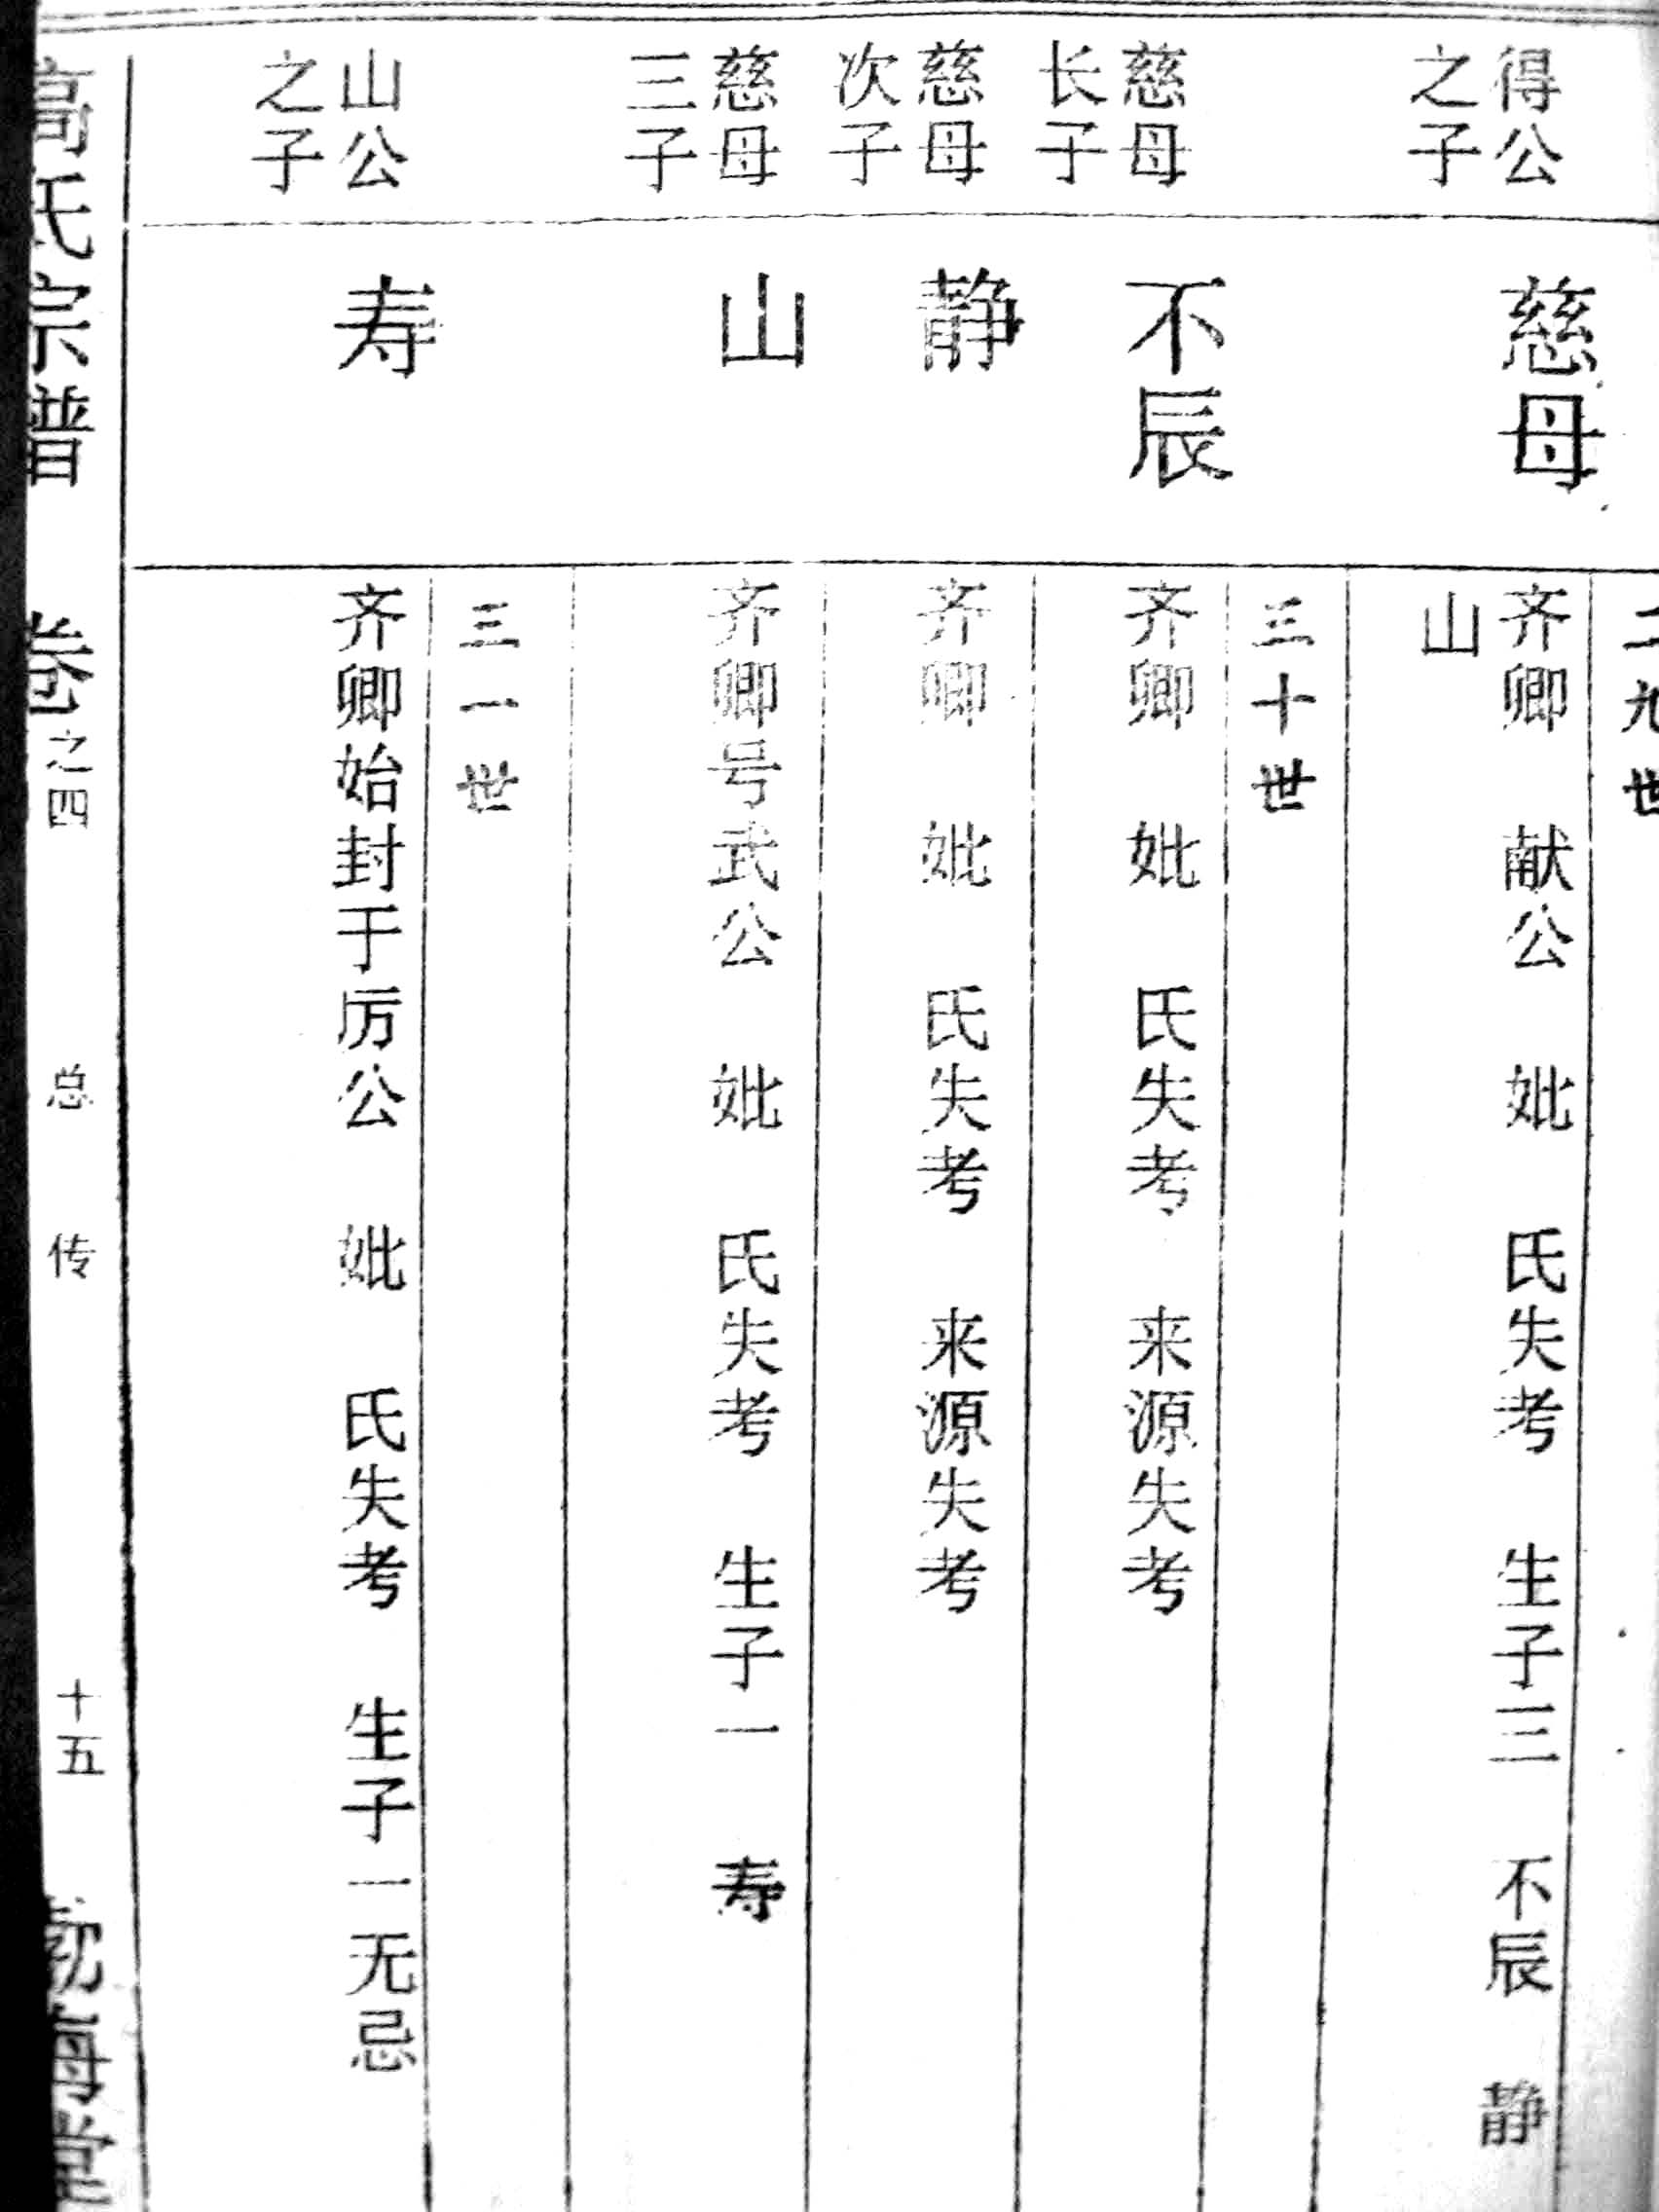 二九世
得公
之子
慈母
齐卿 献公 妣 氏失考 生子三 不辰 静
山
三十世
慈母
长子
不辰
齐卿 妣 氏失考 来源失考
慈母
次子
静
齐卿 妣 氏失考 来源失考
慈母
三子
山
齐卿号武公 妣 氏失考 生子一 寿
三一世
山公
之子
寿
齐卿始封于厉公 妣 氏失考 生子一无忌
高氏宗谱 卷之四 总传 十五 渤海堂